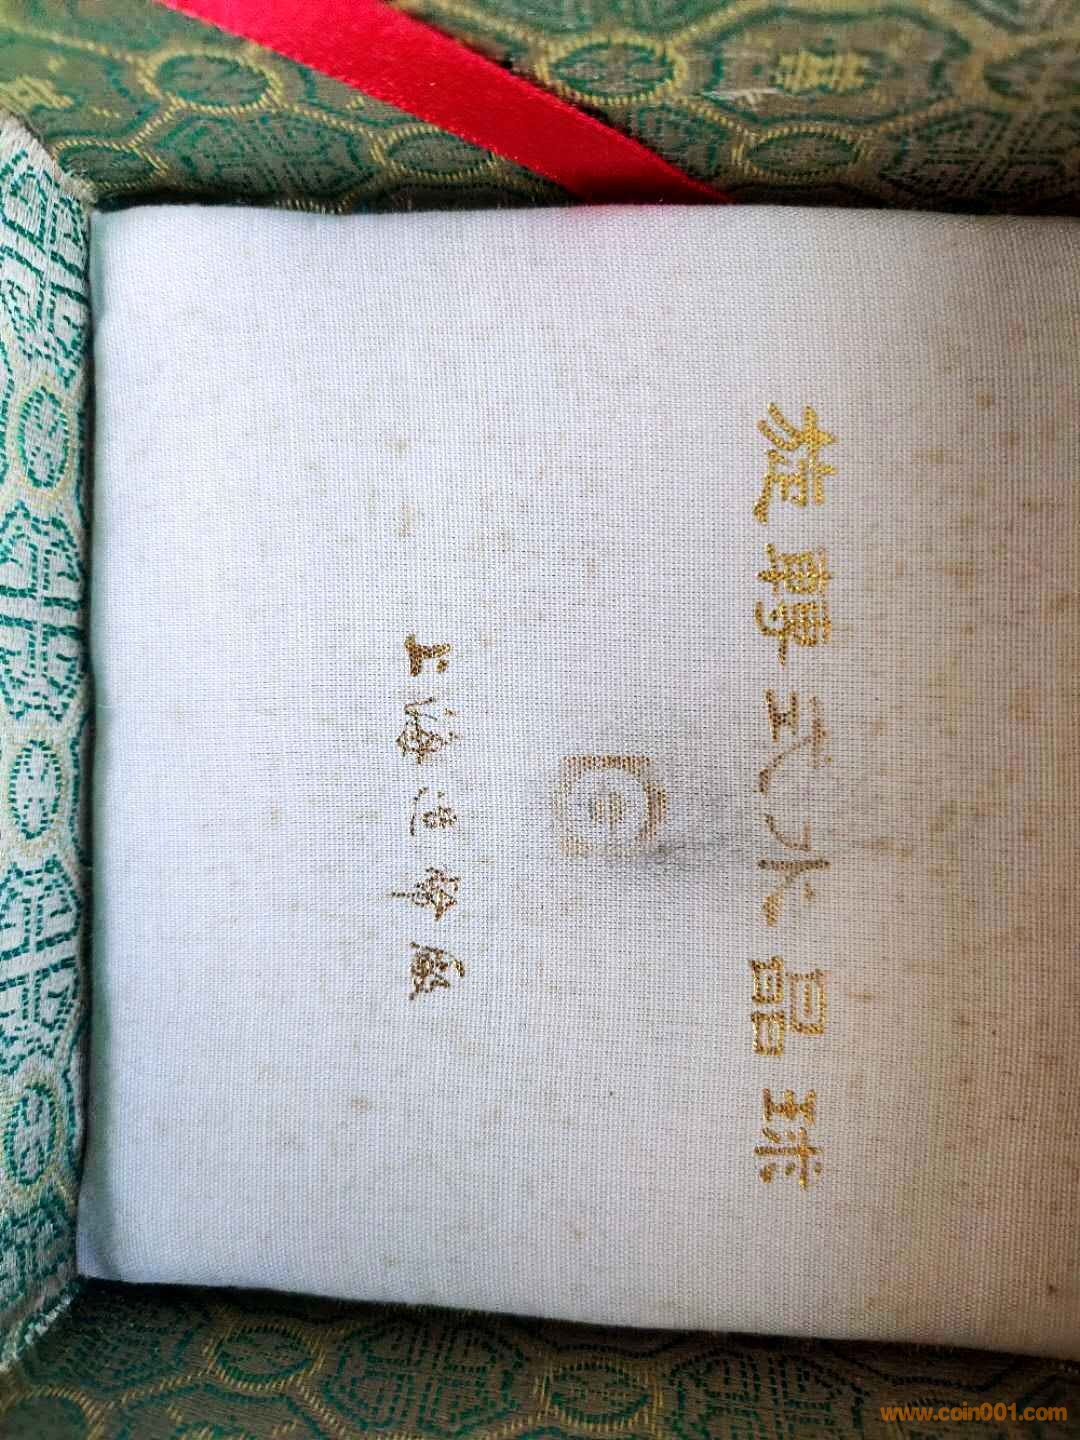 旋轉式水晶球
上海造幣廠
www.coin001.com